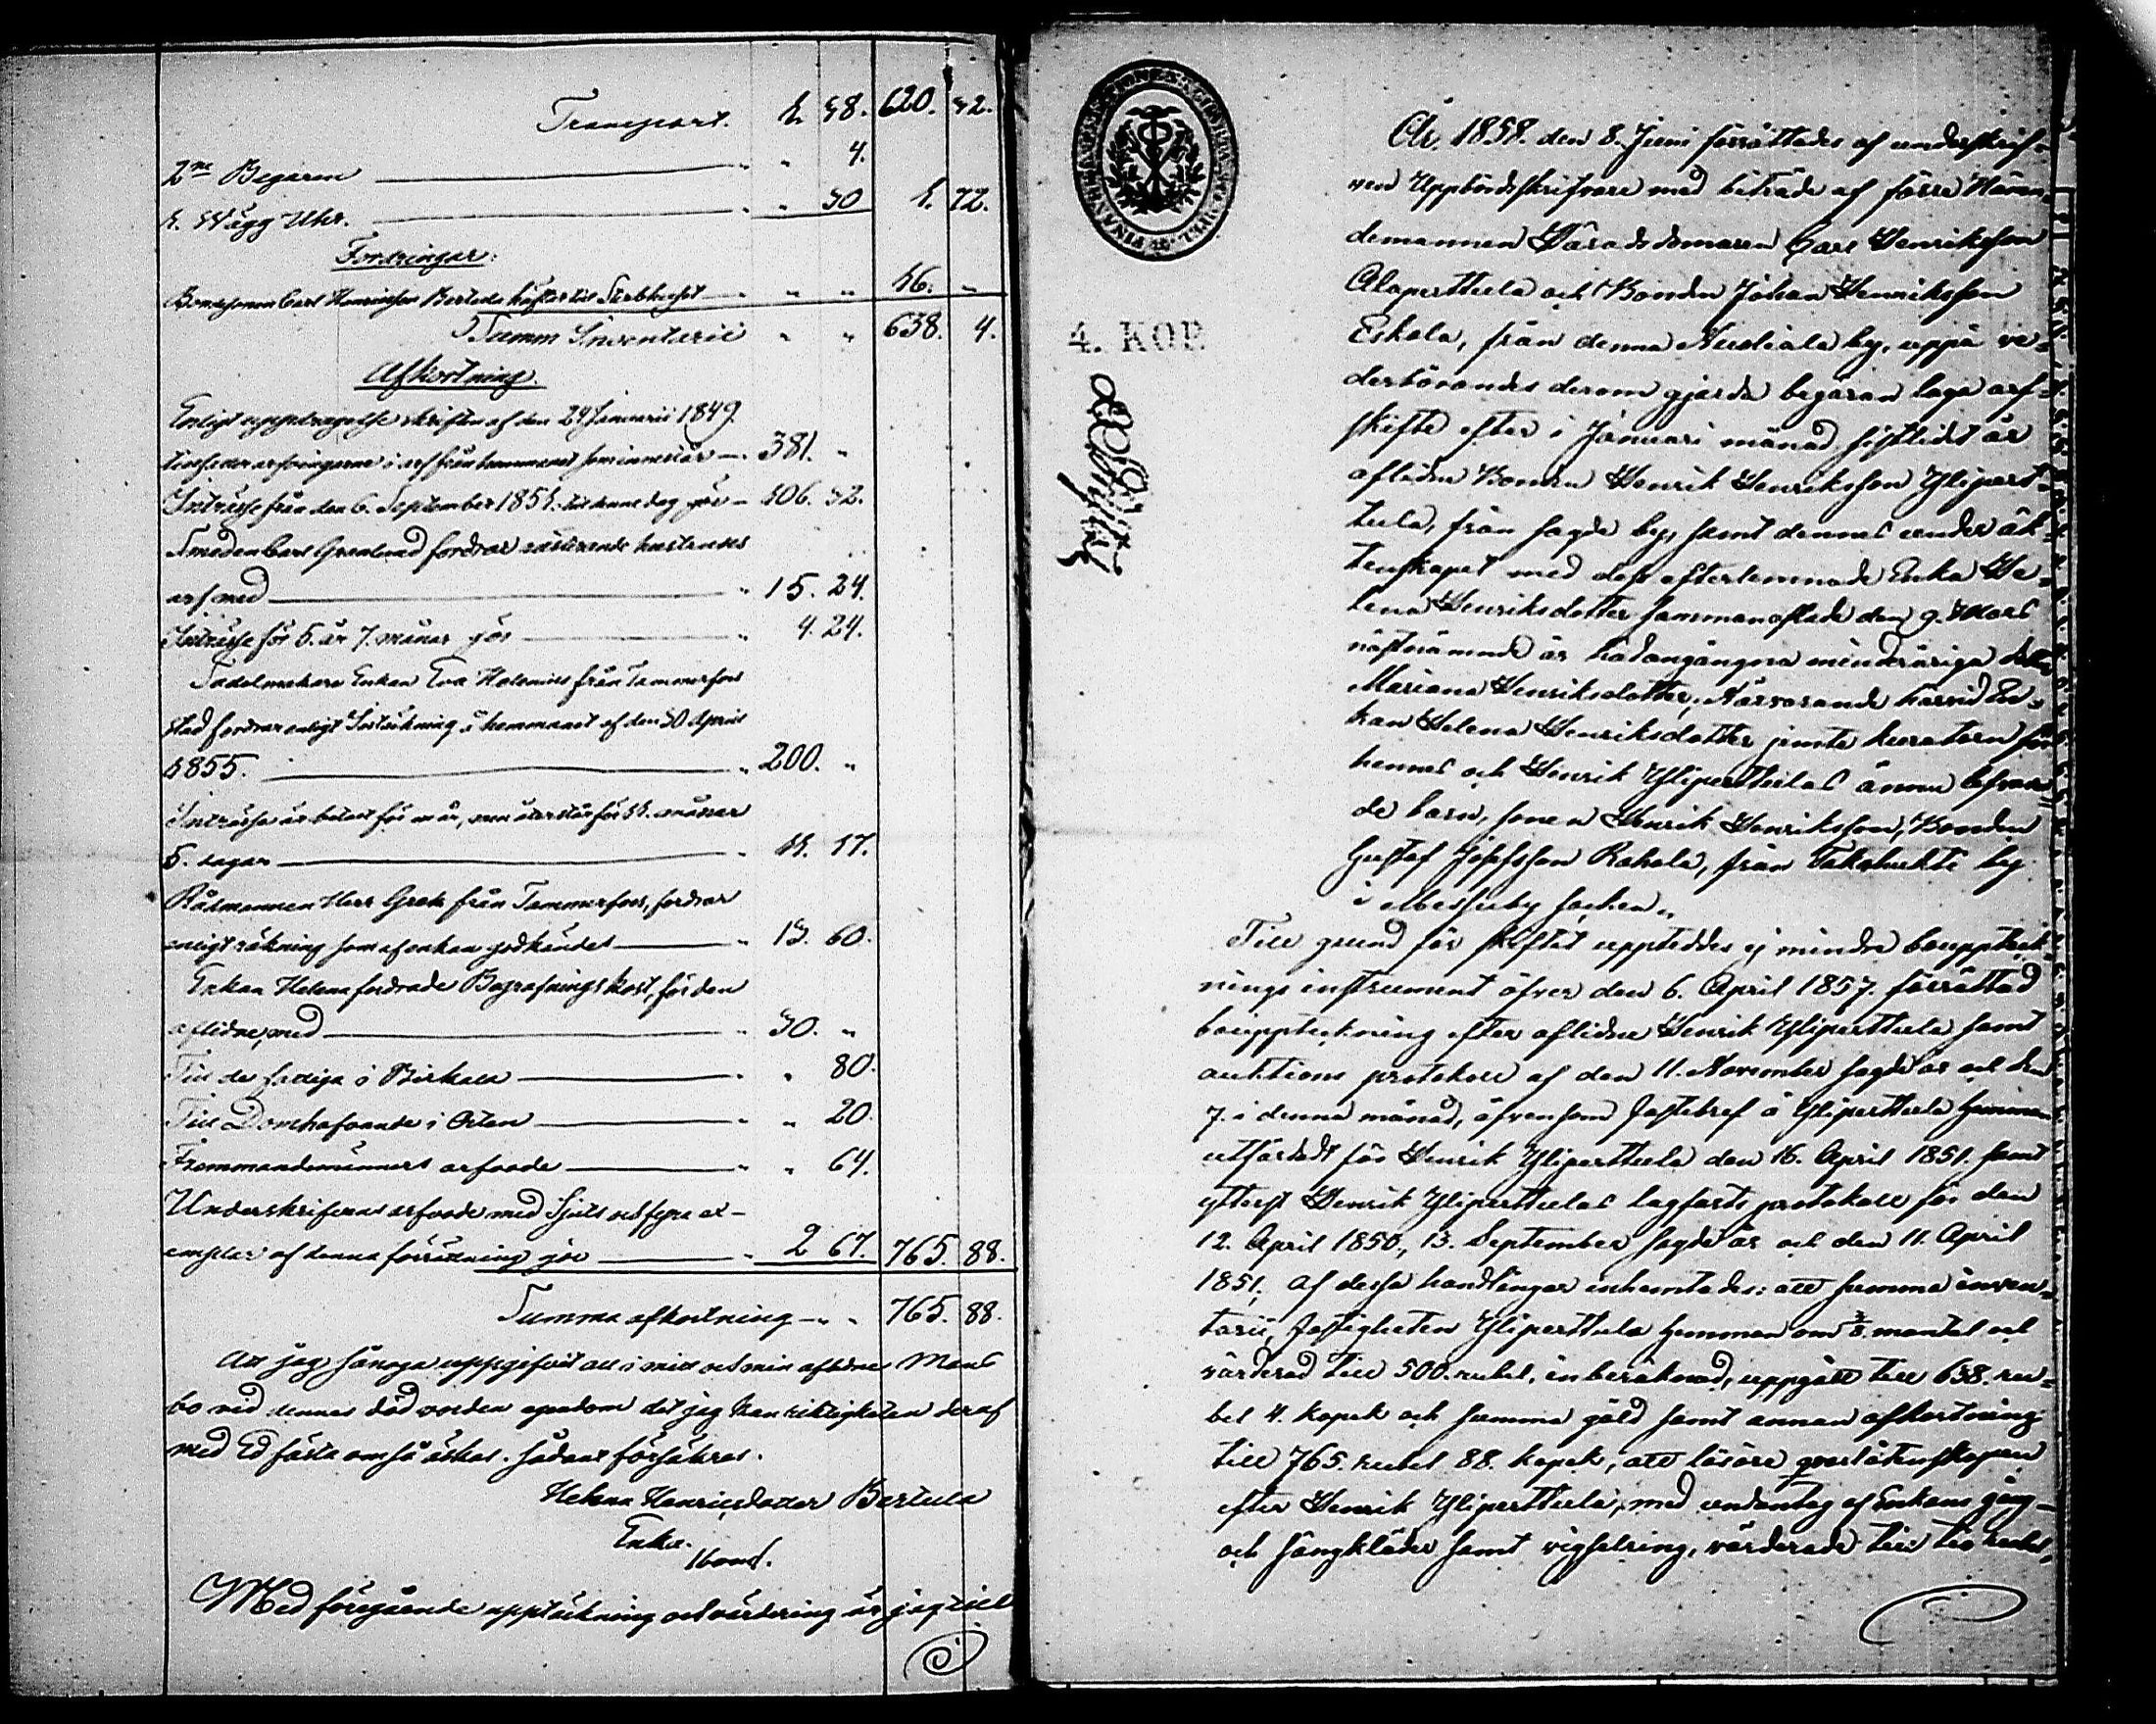 Transport. 1. 38. 620. 32.
2ne Bägaren " " 4.
1. Wägg Uhr. " " 30 1. 72.
Fordringar:
Bondesonen Carl Henricsson Bertula häftar till Sterbhuset " " " 16. "
Summ Inventarii " " 638. 4.
Afkortning.
Enligt uppdragelse skriften af den 24 Januarii 1849.
arfvingarne i arf från hemmanet som innestår 381. "
Intresse från den 6. September 1851. till denne dag gör 106. 32.
Smeden Carl Grönlund fordrar resterande hustruns
arf med " 15. 24.
Intresse för 5. år 7. månar gör " 4. 24.
Sadelmakare Enkan Eva Helenius från Tammerfors
stad fordrar enligt Inteckning i hemmanet af den 30 Aprill
1855. " 200. "
Intresse är betalt för ett år, men återstår för 11. månar
5. dagar " 11. 17.
Rådmannen Herr Grek från Tammerfors, fordrar
enligt räkning som af enkan godkändes " 13. 60.
Enkan Helena fordrade Begrafnings kost, för den
aflidne, med " 30. "
Till de fattiga i Birkala " " 80.
Till Domhafvande i Orten " " 20.
Fremmandemänners arfvode " " 64.
Underskrifvens arfvode med Skjuts och fyra ex-
emplar af denna förrättning gör " 2 67. 765. 88.
Summa afkortning " " 765. 88.
Att jag sånoga uppgifvit allt i mitt och min aflidne Mans
bo vid dennes död vorden egendom det jag kan riktigheten deraf
med Ed fästa om så äskas. Sådant försäkras.
Helena Henricsdotter Bertula
Enka.
Bom.
Med föregående uppteckning och värdering är jag till
4. KOP.
År 1858. den 8. Juni förrättades af underskrif-
ven Uppbördsskrifvare med biträde af förre Näm-
demannen Häradsdomaren Carl Henriksson
Alaperttula och Bonden Johan Henriksson
Eskola, från denna Nuoliala by, uppå ve-
derbörandes derom gjorda begäran laga arf-
skifte efter i Januari månad sistlidet år
aflidne Bonden Henrik Henriksson Ylipert-
tula, från sagde by, samt dennes under äk-
tenskapet med dess efterlemnade Enka He-
lena Henriksdotter sammanaflade den 9. Mars
nästnämnde år hädangångna minderåriga dotter
Mariana Henriksdotter, Närvarande härvid En-
kan Helena Henriksdotter jemte kuratorn för
hennes och Henrik Yliperttulas ännu lefvan-
de barn, sonen Henrik Henriksson, Bonden
Gustaf Josefsson Rahola, från Takahuhti by
i Messuby socken.
Till grund för skiftet uppteddes ej mindre bouppteck-
nings instrument öfver den 6. April 1857. förrättad
bouppteckning efter aflidne Henrik Yliperttula samt
auktions protokoll af den 11. November sagde år och den
7. i denna månad, äfvensom fastebref å Yliperttula hemman
utfärdadt för Henrik Yliperttula den 16. April 1851. samt
ytterst Henrik Yliperttulas lagfarts protokoll för den
12. April 1850., 13. September sagde år och den 11. April
1851, af dessa handlingar inhemtades: att summa inven-
tarii, fastigheten Yliperttula hemman om 3/8 mantal och
värderad till 500. rubel, inberäknad, uppgått till 638. ru-
bel 4. kopek och summa gäld samt annan afkortning
till 765. rubel 88. kopek; att lösöre qvarlåtenskapen
efter Henrik Yliperttula, med undantag af Enkans gång-
och sängkläder samt vigselring, värderade till tio rubel,